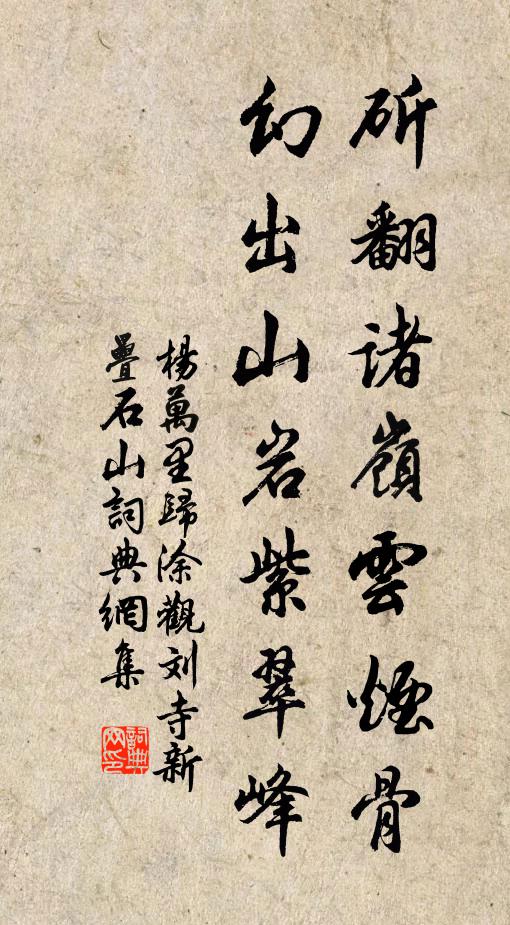 斫翻诸嶺雲煙骨
幻出山岩紫翠峰
楊萬里歸涂觀刘寺新
疊石山詞典網集
詞典網印